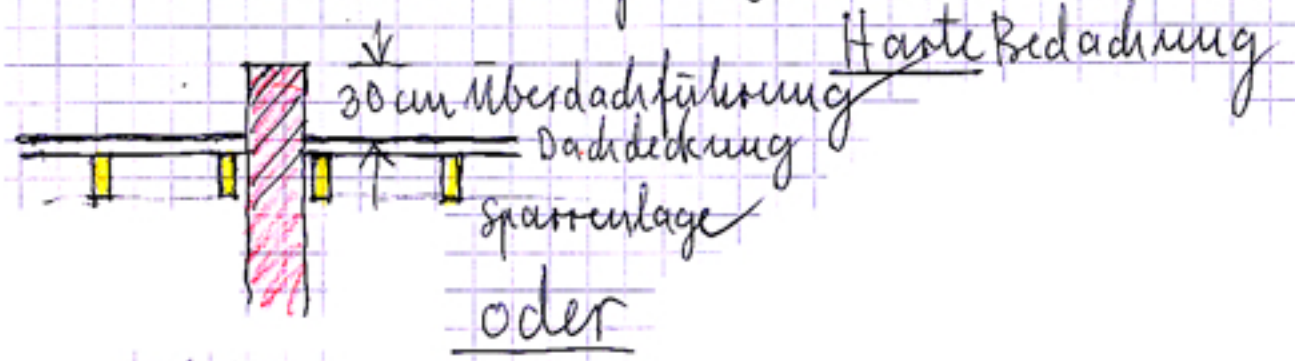 Harte Bedachung
30 cm Überdachführung
Dachdeckung
Sparrenlage
oder